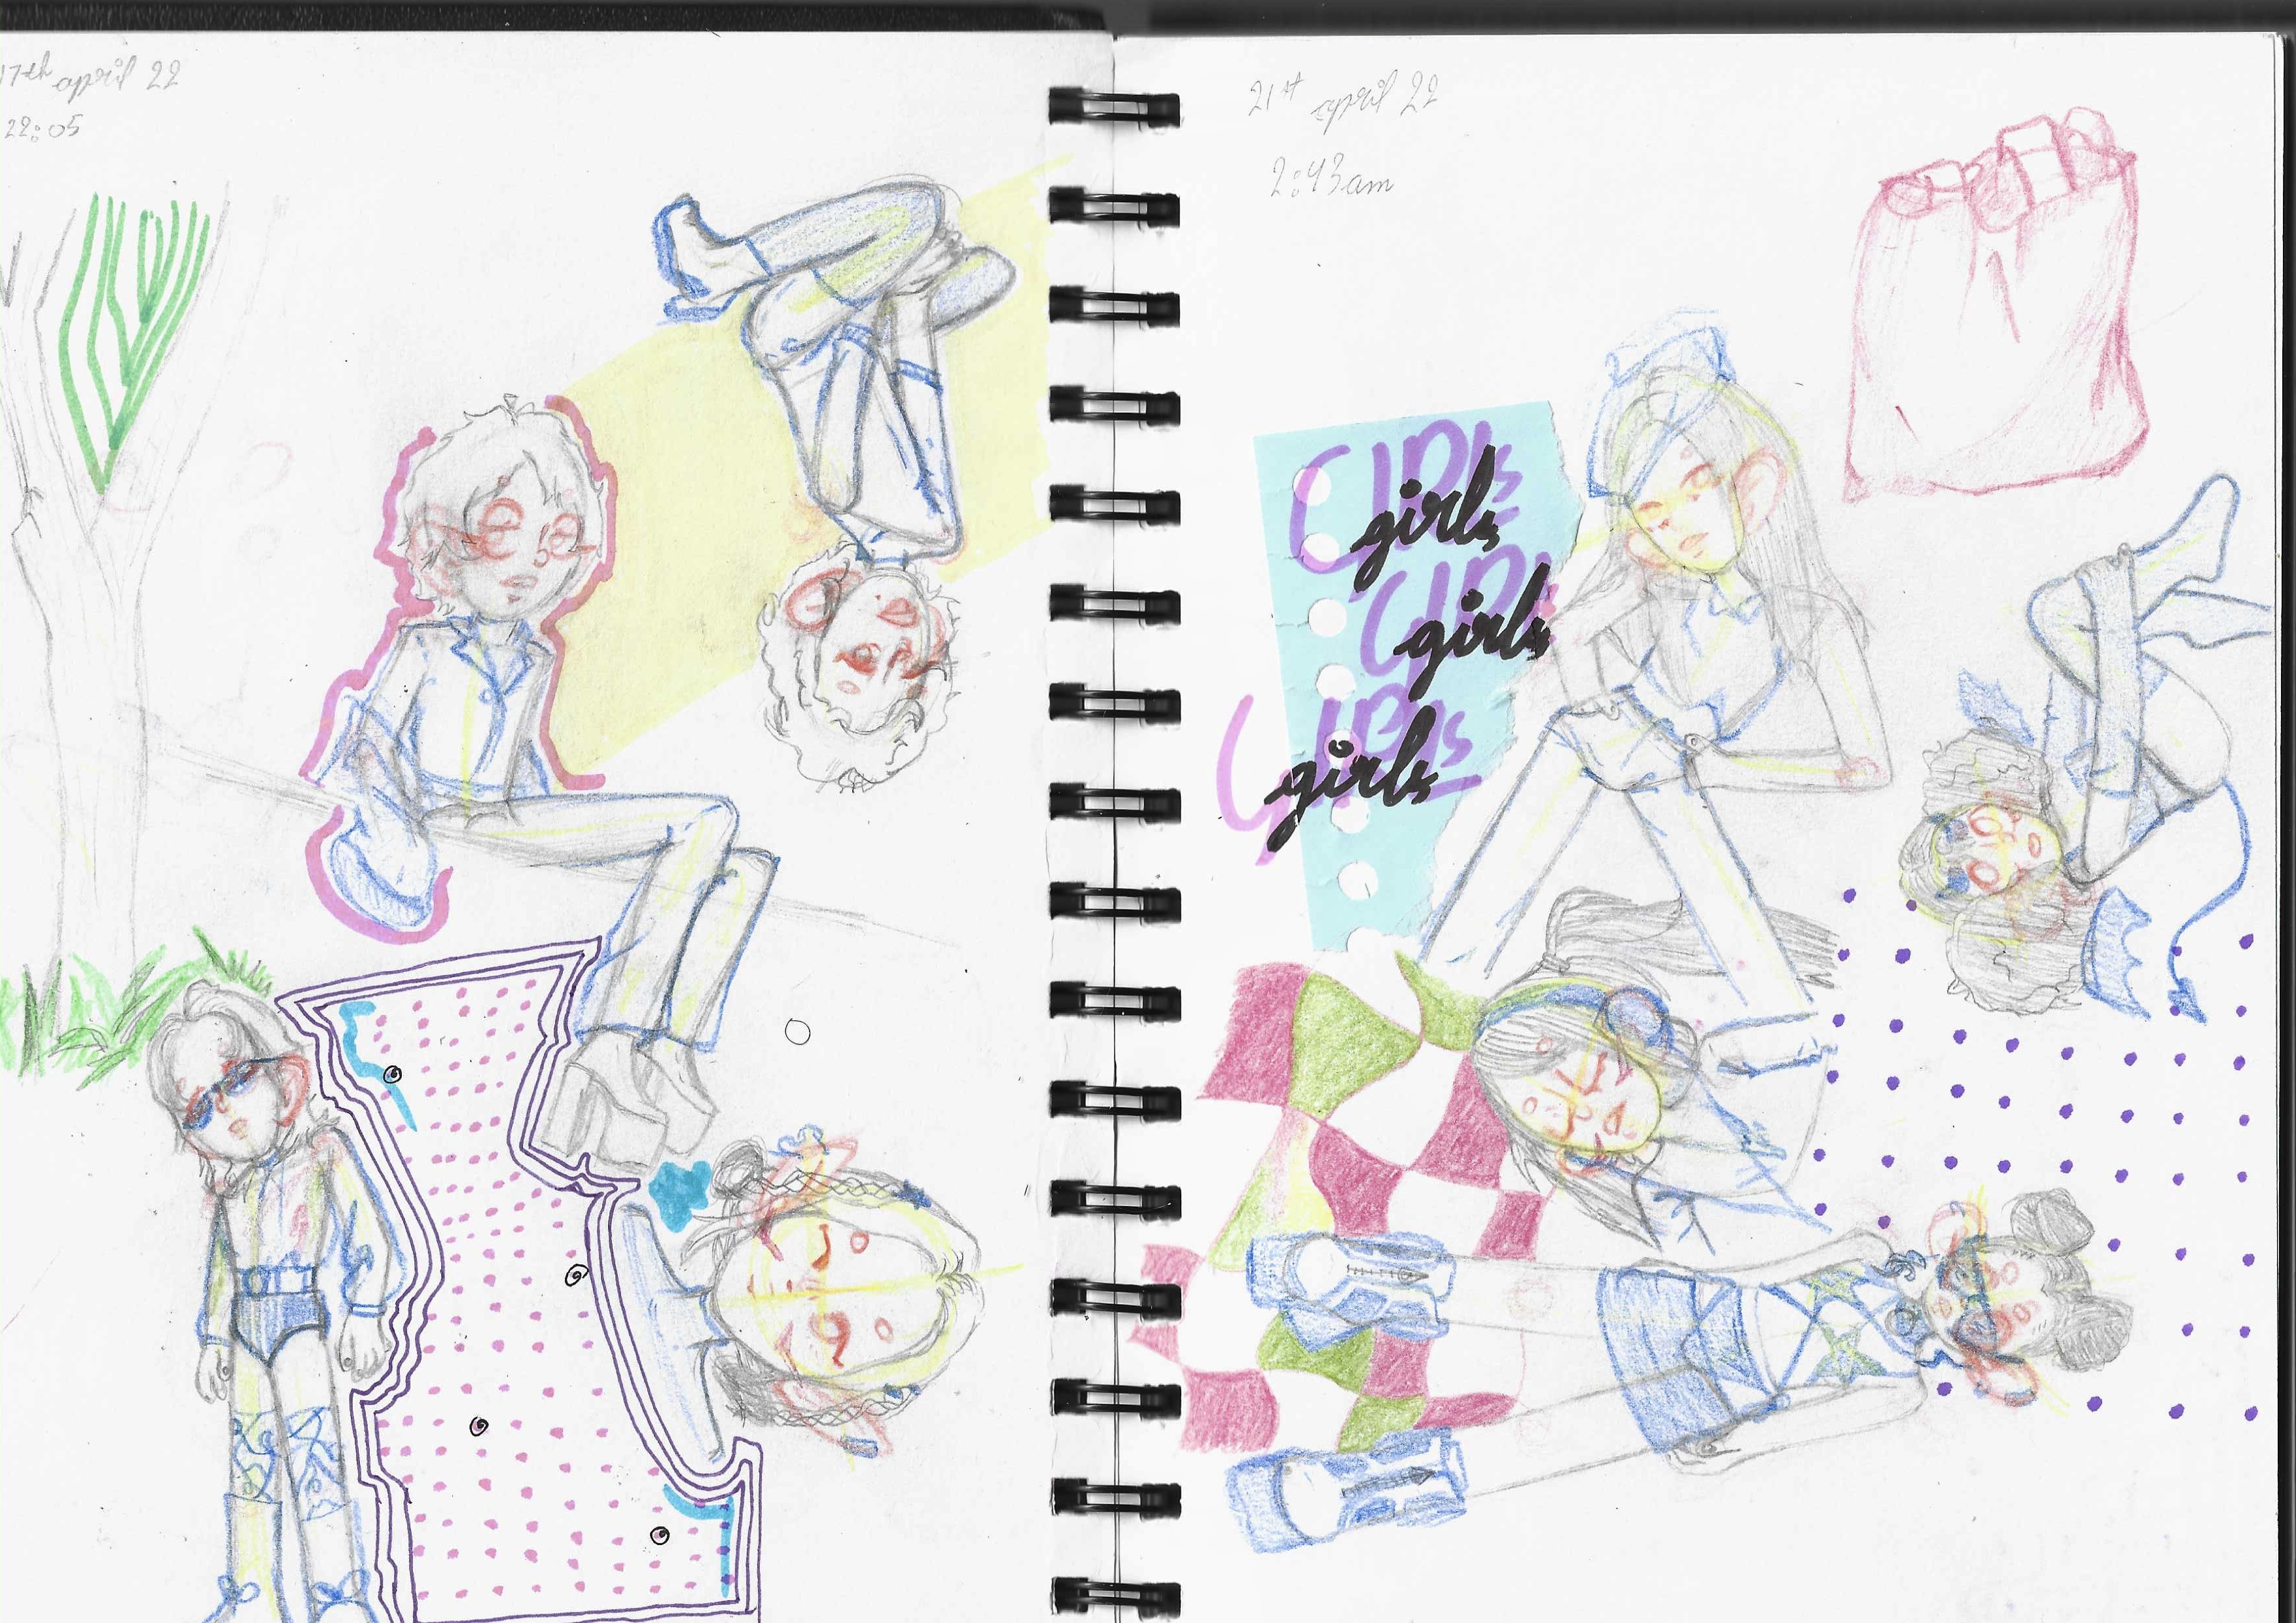 17th april 22
22:05
21st april 22
2:43am
Girls
girls
Girls
girls
Girls
girls